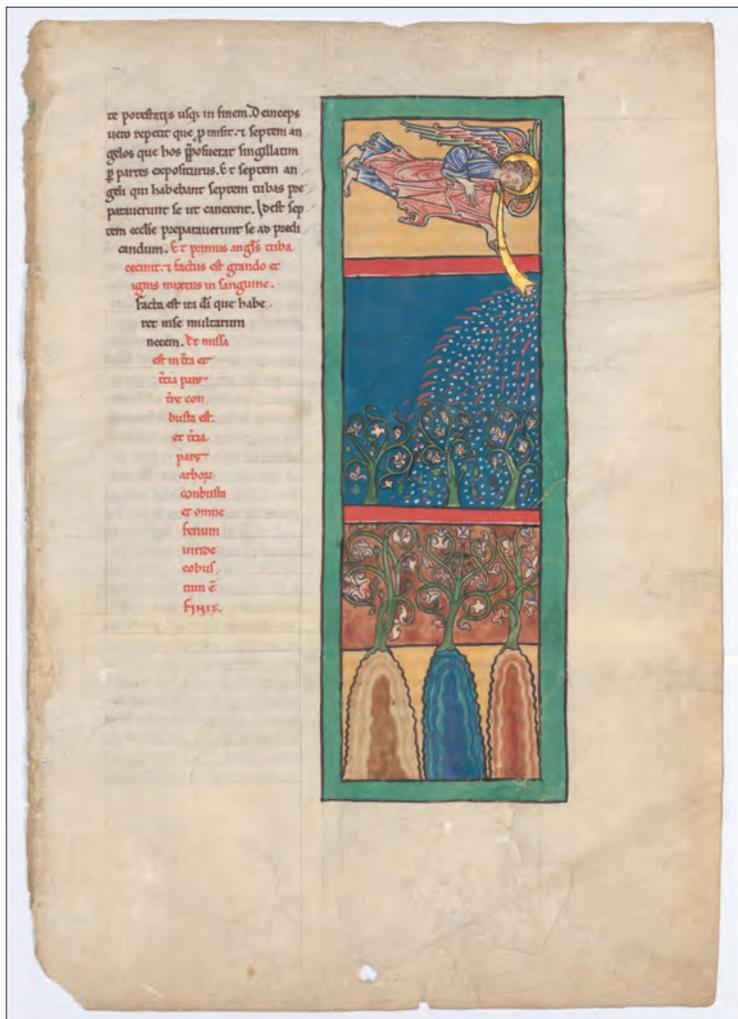 te potestatis usq; in finem. Deinceps
uero repetit que p misit. ⁊ septem an
gelos que hos p̄posuerat singillatim
ꝑ partes expositurus. Et septem an
geli qui habebant septem tubas pre
parauerunt se ut canerent. Idest sep
tem ecclie preparauerunt se ad predi
candum. Et primus angl̄s tuba
cecinit. ⁊ factus est grando et
ignis mixtus in sanguine.
facta est ira dī que habe
ret in se multarum
necem. Et missa
est in t̄ra et
t̄cia pars
t̄re con
busta est.
et t̄cia
pars
arborꝝ
conbusta
et omne
fenum
uiride
cobus
tum ē
finis.